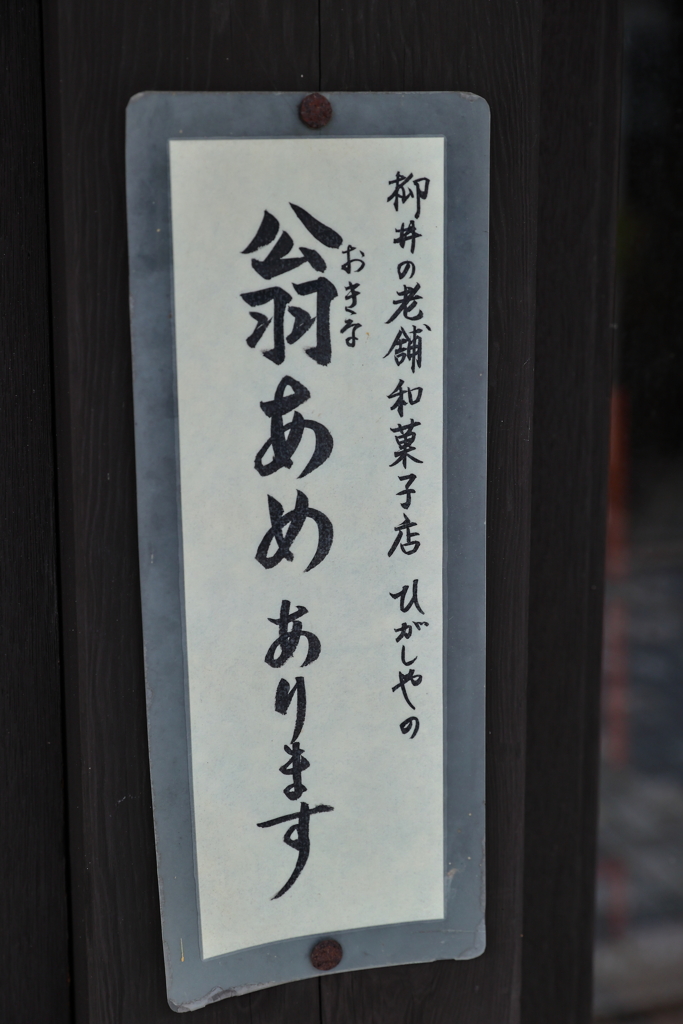 柳井の老舗和菓子店 ひがしやの
翁あめ あります
おきな